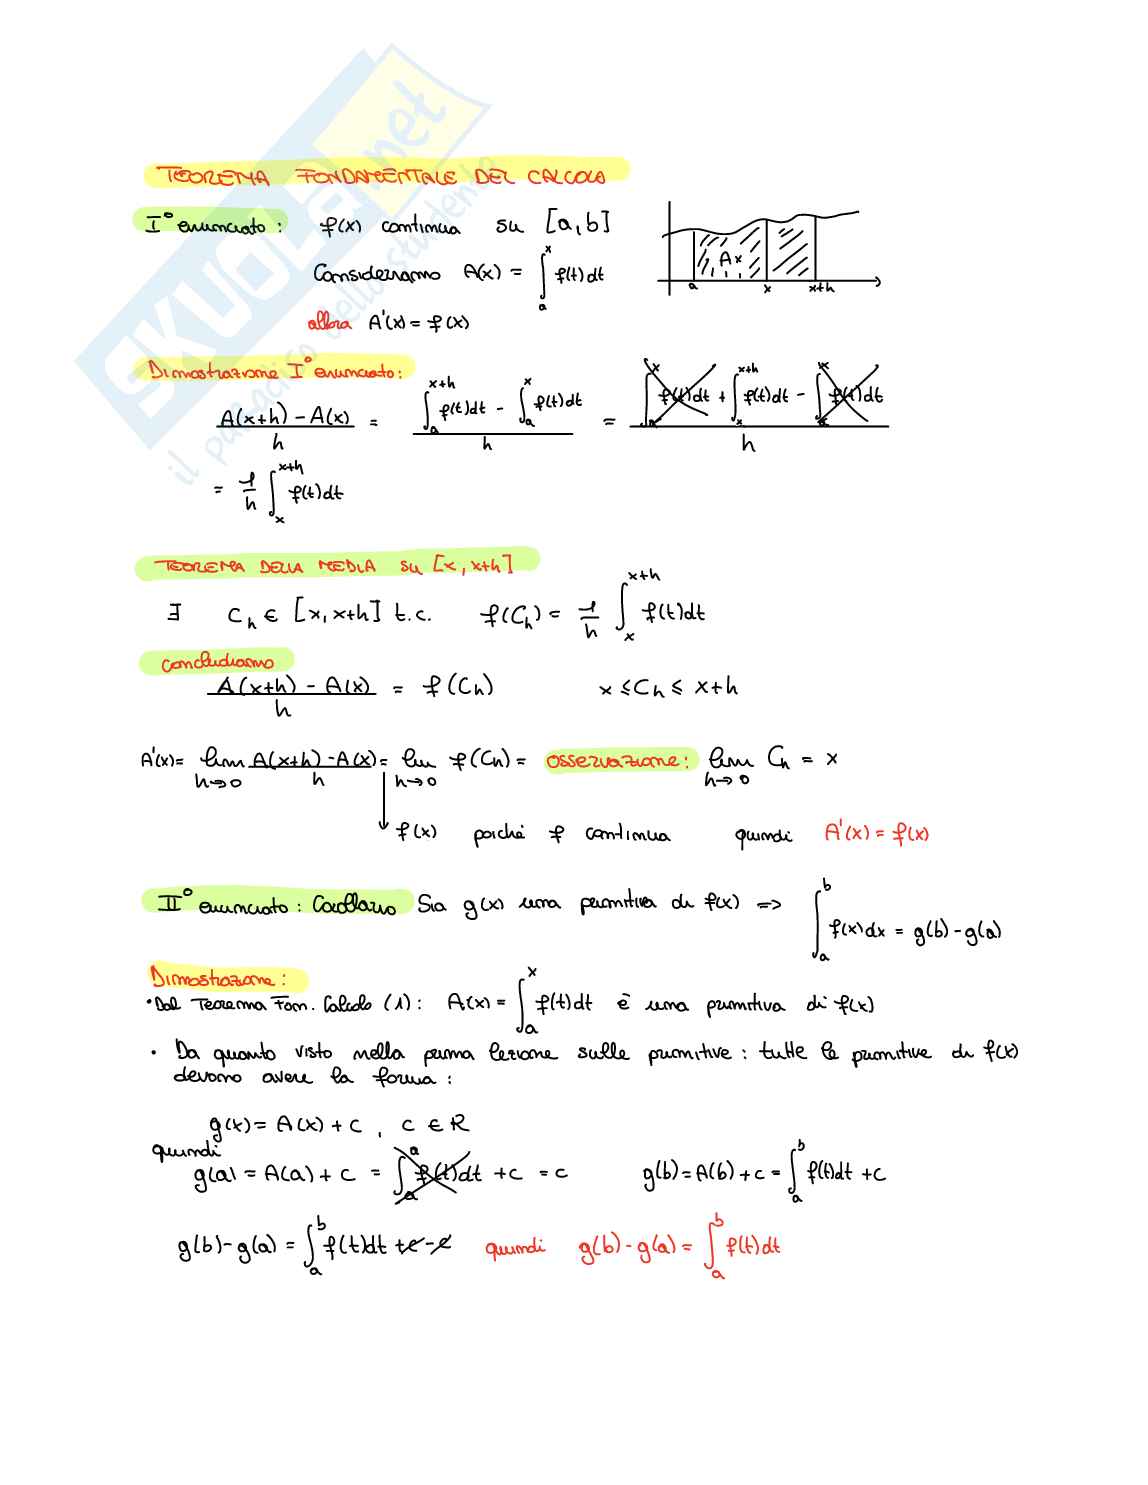 SKUOLA.net
il paradiso dello studente
TEOREMA FONDAMENTALE DEL CALCOLO
I° enunciato: f(x) continua su [a,b]
Consideriamo A(x) = ∫_a^x f(t)dt
A x
a x x+h
allora A'(x) = f(x)
Dimostrazione I° enunciato:
(A(x+h) - A(x))/h = (∫_a^{x+h} f(t)dt - ∫_a^x f(t)dt)/h = (∫_a^x f(t)dt + ∫_x^{x+h} f(t)dt - ∫_a^x f(t)dt)/h
= 1/h ∫_x^{x+h} f(t)dt
TEOREMA DELLA MEDIA SU [x, x+h]
∃ C_h ∈ [x, x+h] t.c. f(C_h) = 1/h ∫_x^{x+h} f(t)dt
concludiamo
(A(x+h) - A(x))/h = f(C_h) x ≤ C_h ≤ x+h
A'(x) = lim_{h→0} (A(x+h) - A(x))/h = lim_{h→0} f(C_h) = osservazione: lim_{h→0} C_h = x
↓ f(x) poiché f continua quindi A'(x) = f(x)
II° enunciato: Corollario Sia g(x) una primitiva di f(x) => ∫_a^b f(x)dx = g(b) - g(a)
Dimostrazione:
• Dal Teorema Fon. Calcolo (1): A(x) = ∫_a^x f(t)dt è una primitiva di f(x)
• Da quanto visto nella prima lezione sulle primitive: tutte le primitive di f(x)
devono avere la forma:
g(x) = A(x) + c, c ∈ R
quindi
g(a) = A(a) + c = ∫_a^a f(t)dt + c = c g(b) = A(b) + c = ∫_a^b f(t)dt + c
g(b) - g(a) = ∫_a^b f(t)dt + c - c quindi g(b) - g(a) = ∫_a^b f(t)dt